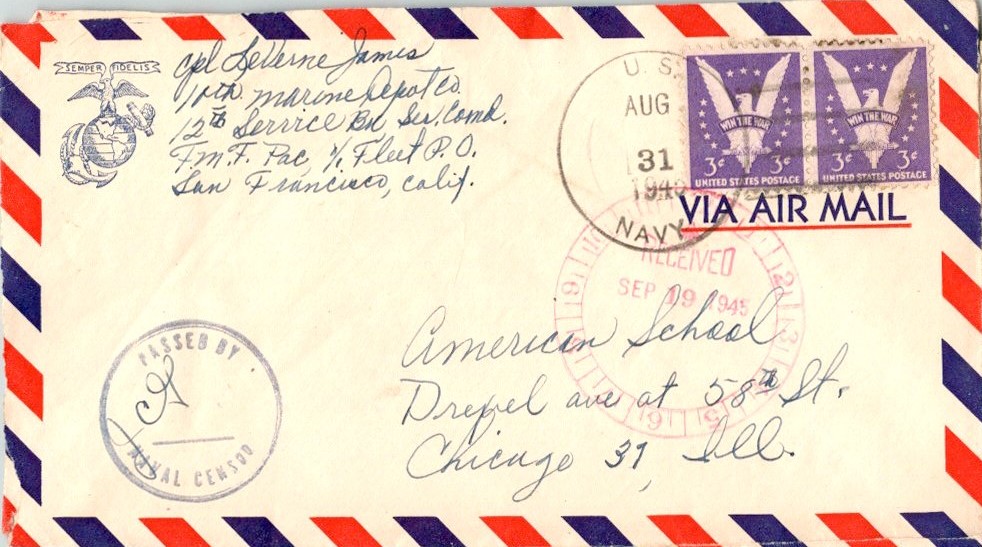 SEMPER FIDELIS
Cpl LeVerne James
10th Marine Depot Co.
12th Service Bn Ser. Comd.
F.m.F. Pac, % Fleet P.O.
San Francisco, Calif.
U. S.
AUG
31
1945
NAVY
WIN THE WAR
3¢ 3¢
UNITED STATES POSTAGE
WIN THE WAR
3¢ 3¢
UNITED STATES POSTAGE
VIA AIR MAIL
RECEIVED
SEP 19 1945
9 2 3 5 6
American School
Drexel ave at 58th St.
Chicago 37, Ill.
PASSED BY
NAVAL CENSOR